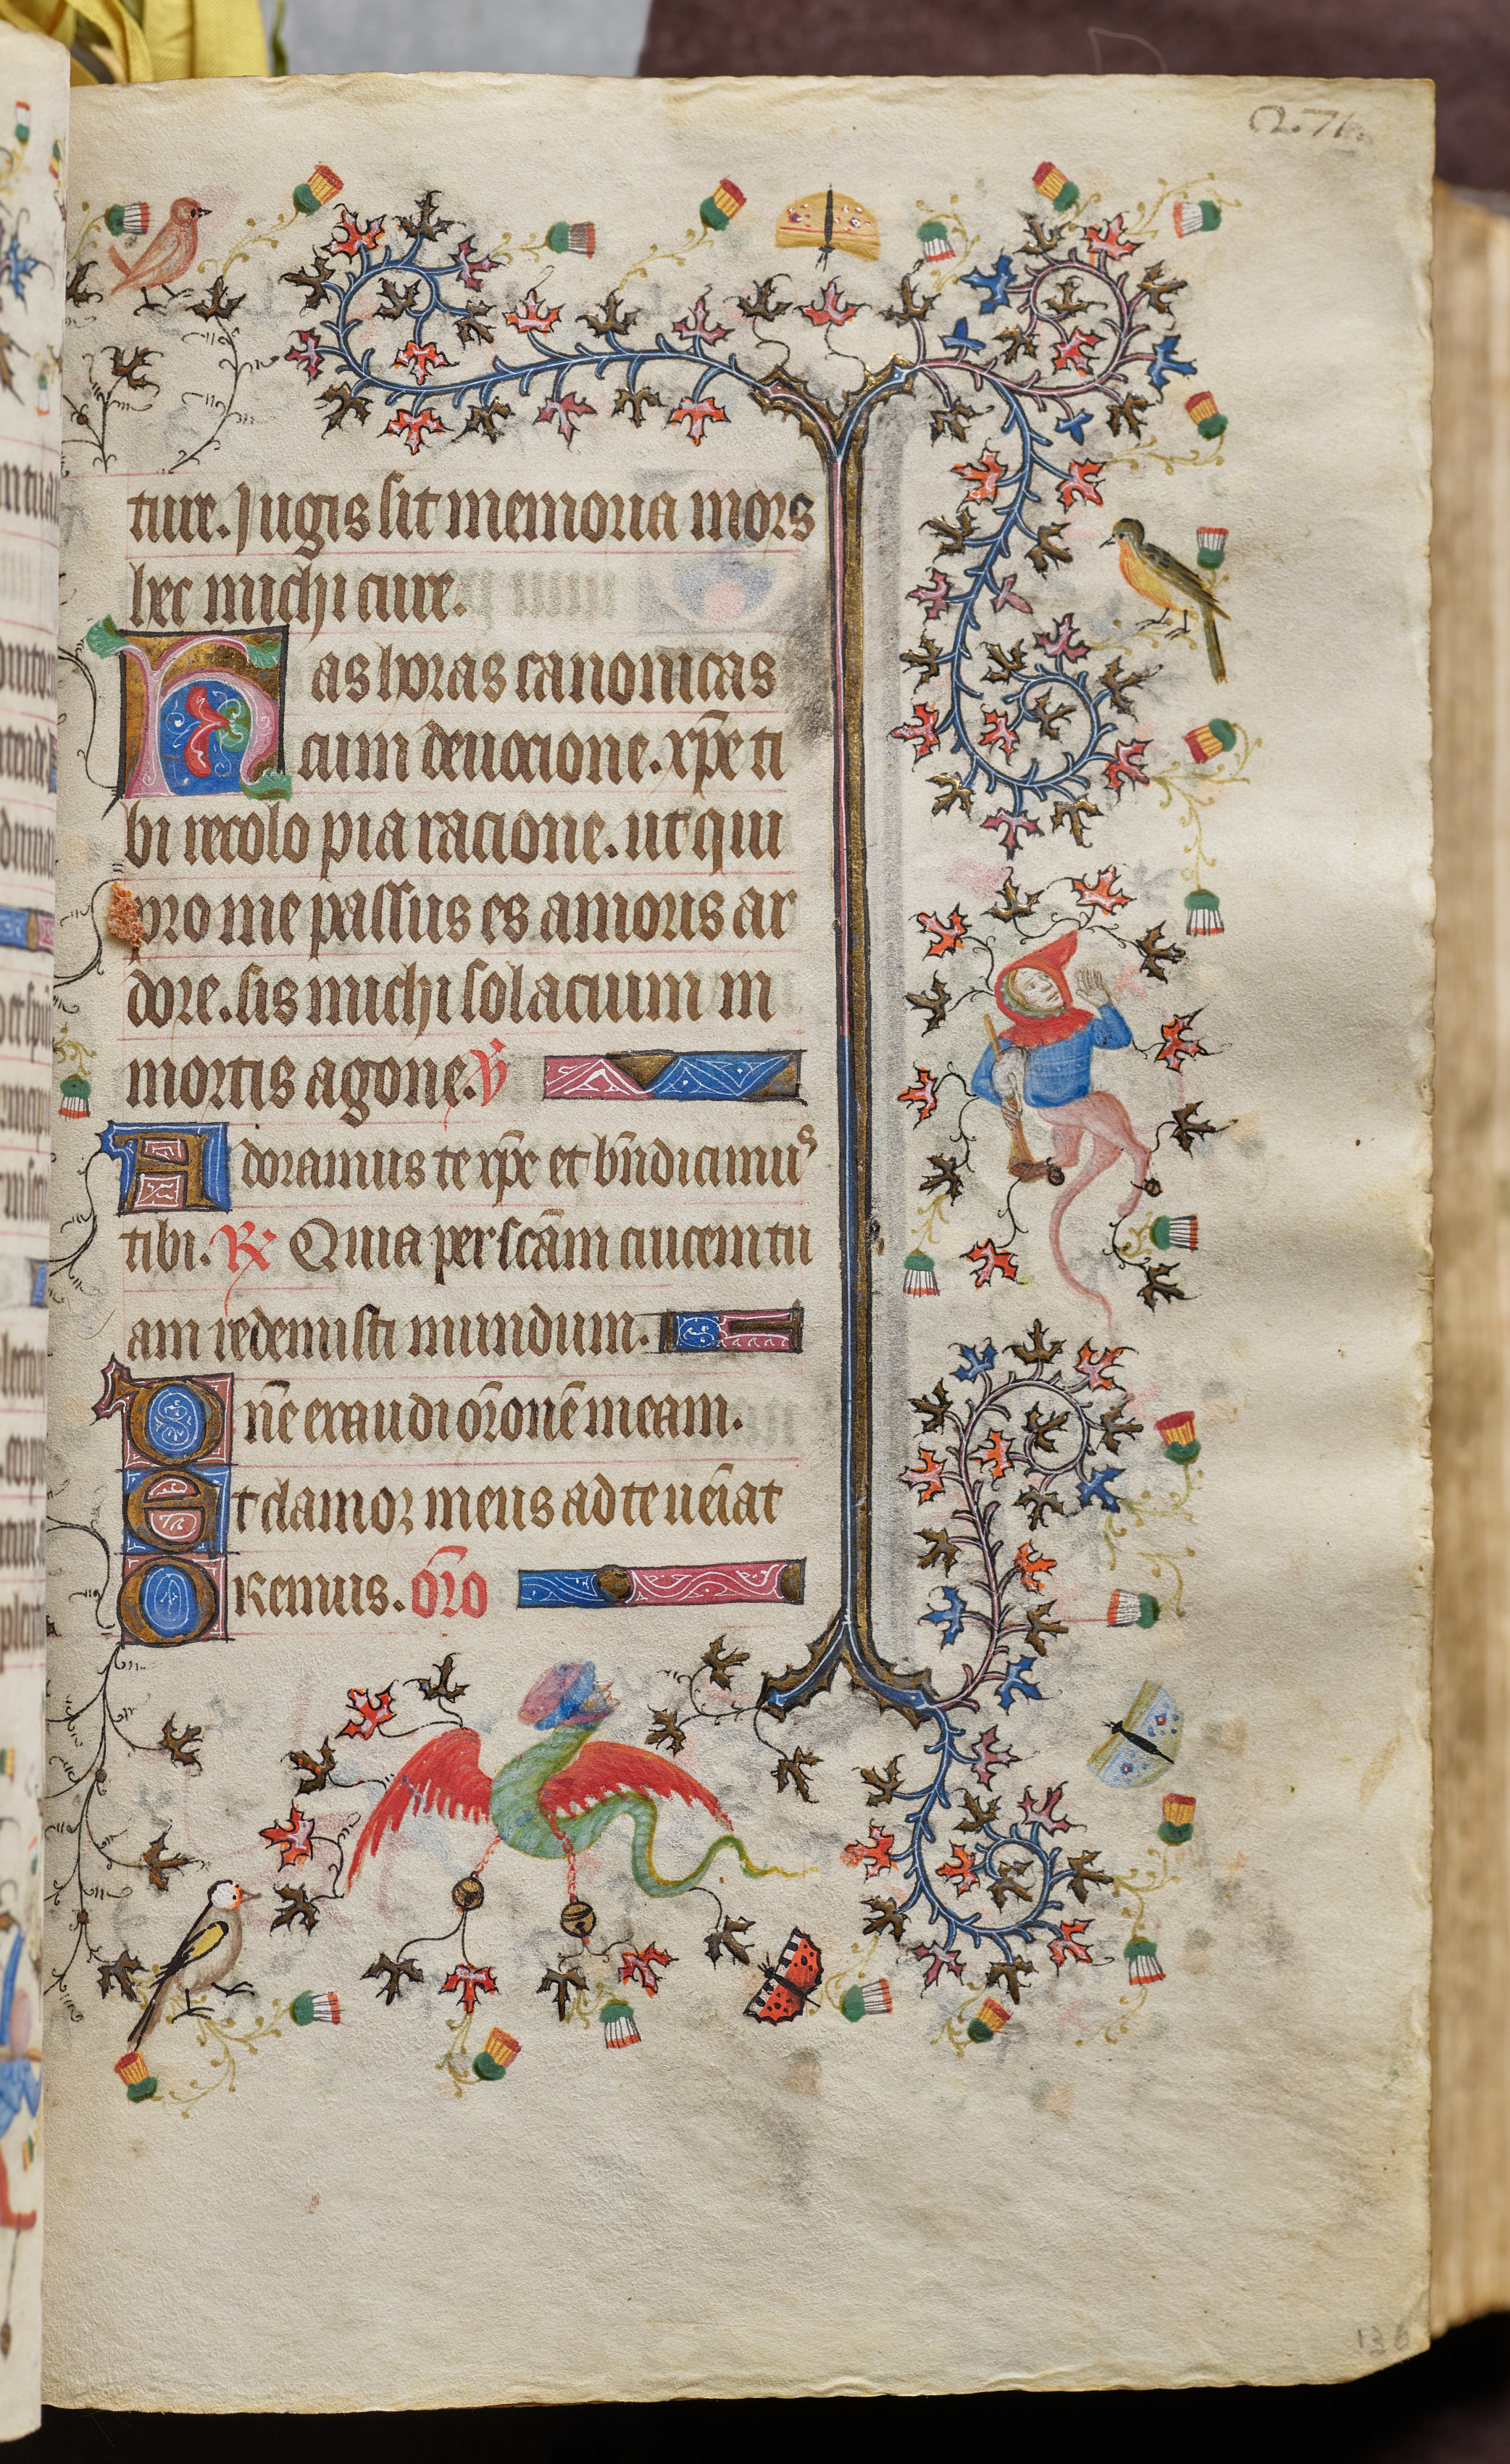 Q.71.
ture. Jugis sit memoria mors
hec michi cure.
Has horas canonicas
cum deuocione. xp̄e ti
bi recolo pia racione. ut qui
pro me passus es amoris ar
dore. sis michi solacium in
mortis agone. v̄
Adoramus te xp̄e et bn̄dicimus
tibi. R Quia per sc̄am crucem tu
am redemisti mundum.
Dn̄e exaudi or̄onē meam.
Et clamor meus ad te uēiat
Oremus. or̄o